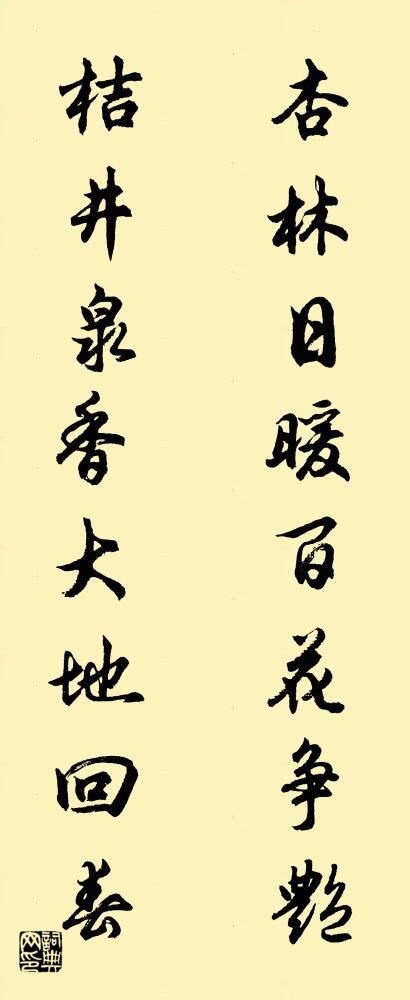 杏林日暖百花争艷
桔井泉香大地回春
詞典网印